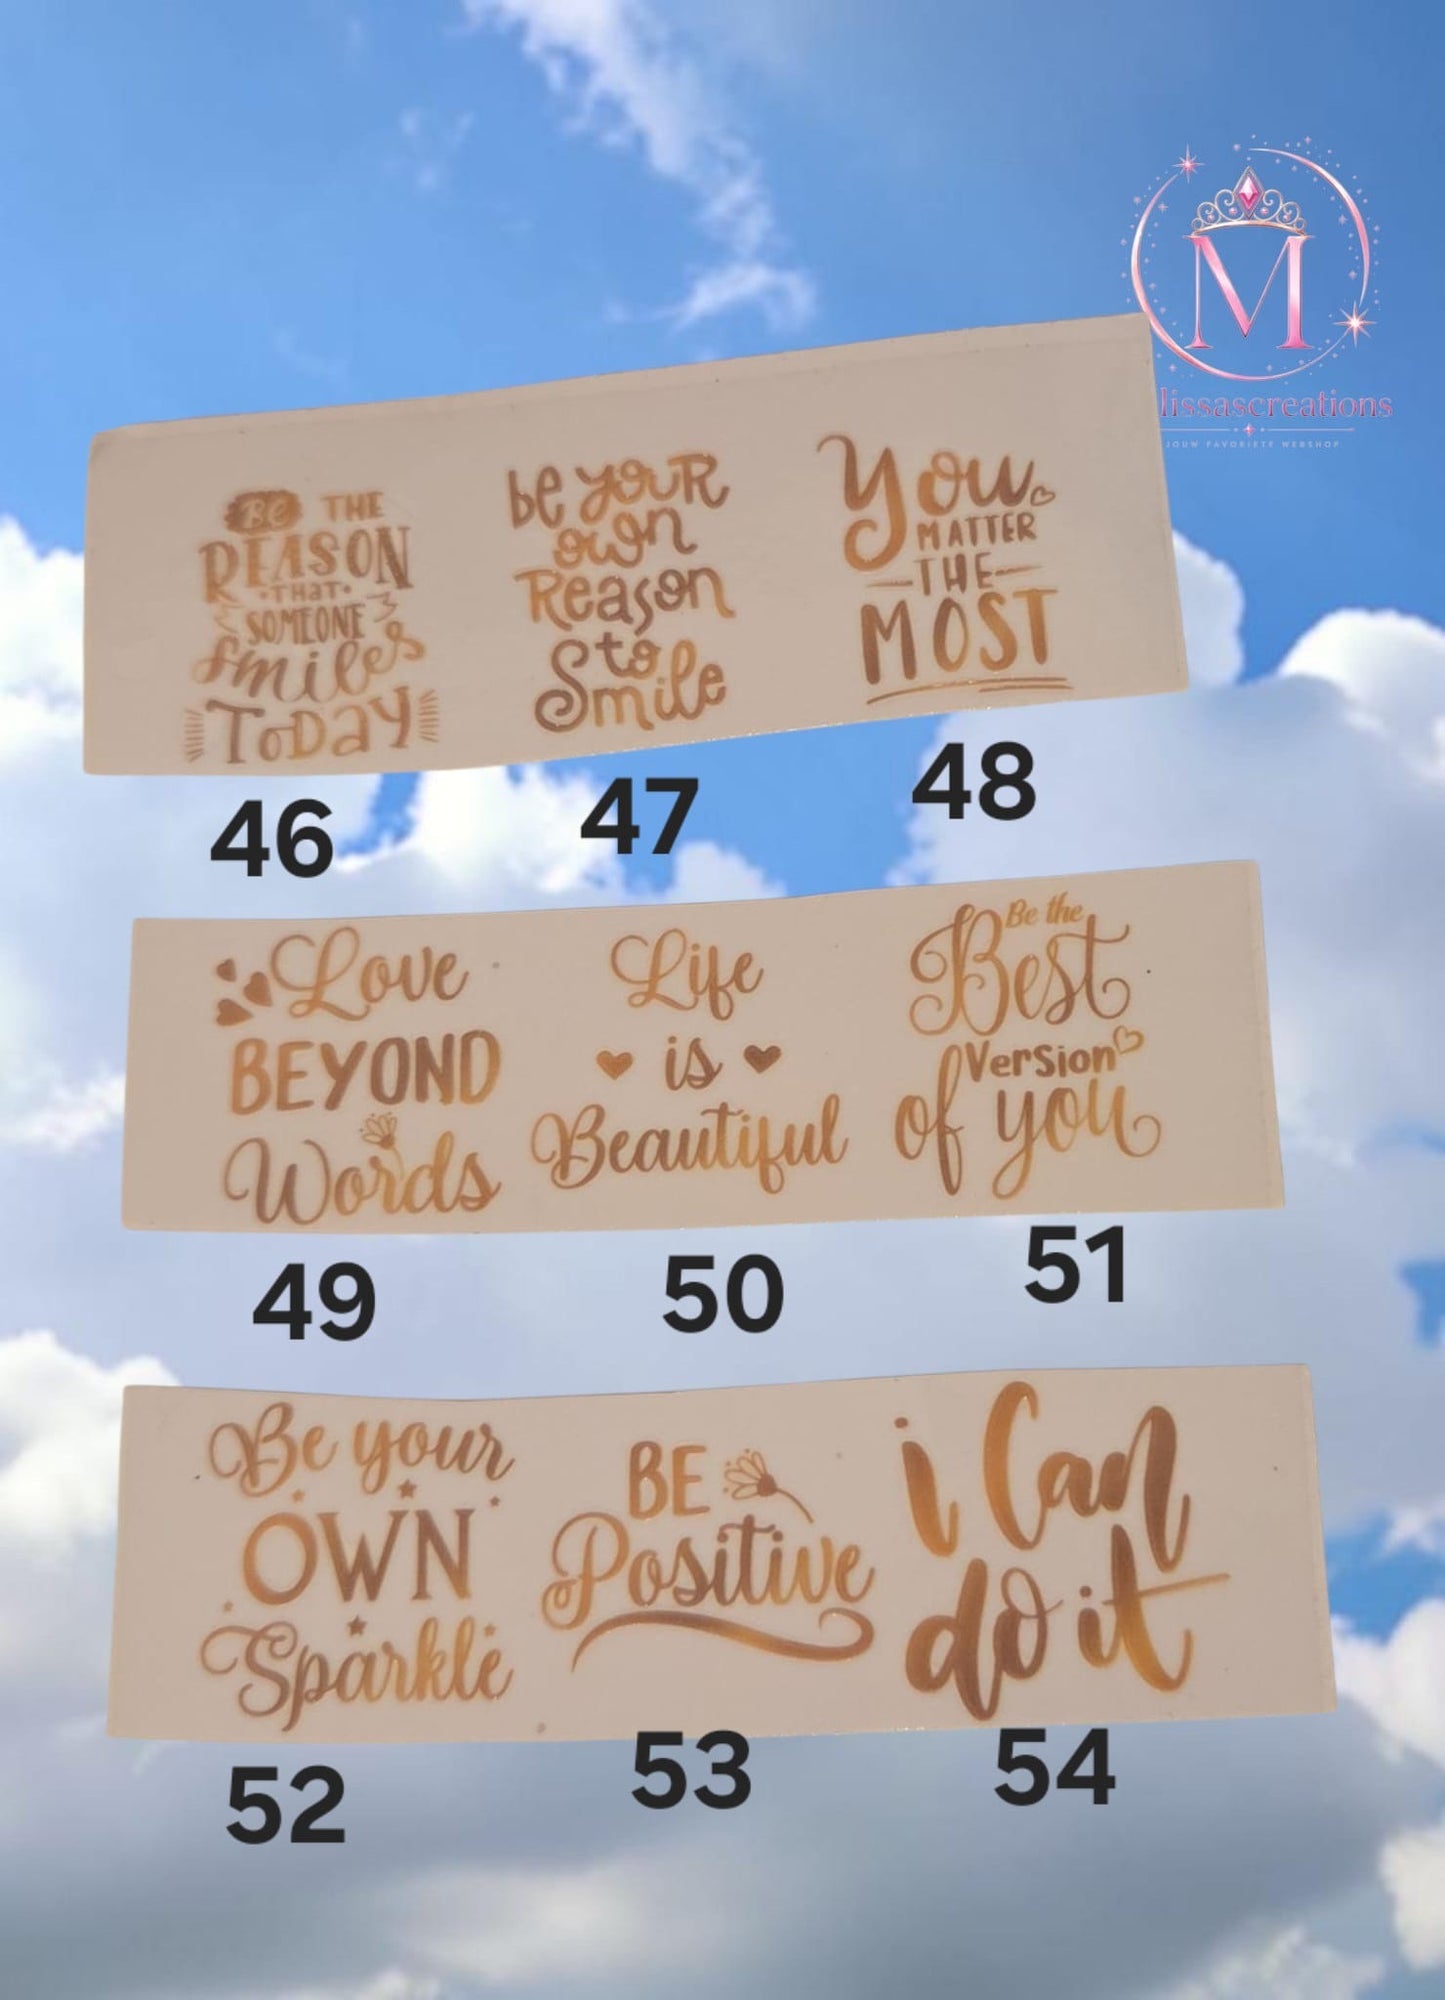 M
lissascreations
JOUW FAVORIETE WEBSHOP
Be THE
REASON
THAT
SOMEONE
Smiles
TODAY
be your
own
Reason
to
Smile
You
MATTER
THE
MOST
46
47
48
Love
BEYOND
Words
Life
is
Beautiful
Be the
Best
Version
of you
49
50
51
Be your
OWN
Sparkle
BE
Positive
i Can
do it
52
53
54